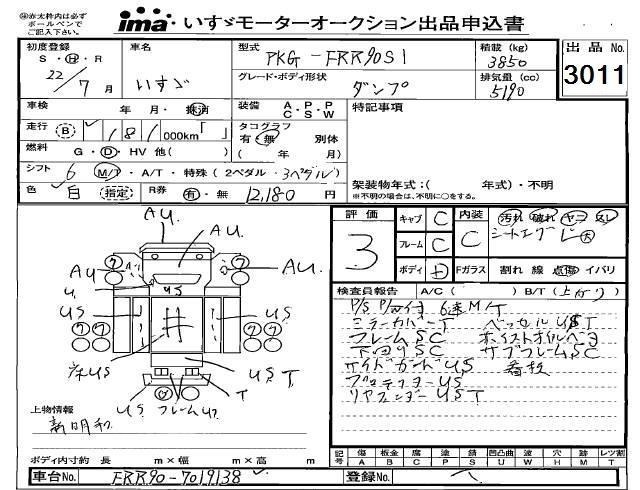 ㊟赤太枠内は必ず
ボールペンで
ご記入下さい。
ima・いすゞモーターオークション出品申込書
初度登録
S・H・R
22/7月
車名
いすゞ
型式
PKG-FRR90S1
グレード・ボディ形状
ダンプ
積載 (kg)
3850
排気量 (cc)
5190
出品 No.
3011
車検 年・月・抹消
装備 A・P・P C・S・W
特記事項
走行 (B)
000km「 」
タコグラフ
有・無 別体
( 年 月)
燃料 G・D・HV 他( )
シフト 6 M/T・A/T・特殊 (2ペダル・3ペダル)
架装物年式:( 年式)・不明
※不明の場合は、不明に○をする。
色 白 (指定) R券 有・無 12,180 円
評価
3
キャブ C
フレーム C
ボディ
内装 C
汚れ 破れ ヤニ スレ
Fガラス 割れ 線 点傷 イバリ
検査員報告 A/C ( ) B/T (上がり)
6速M/T
ミラーカバーT
フレームSC
下回りSC サブフレームSC
サイドガードUS 看板
プロテクターUS
リヤフェンダーUST
AU
AU
AU
U
US
US
US
US
UST
US フレームU
T
上物情報
新明和
ボディ内寸約 長 m×幅 m×高 m
記号 傷A 板金B 腐C 塗P 錆S 凹凸曲U 波W 穴H 跡M レツ割T
車台No. FRR90-7019138
登録No.